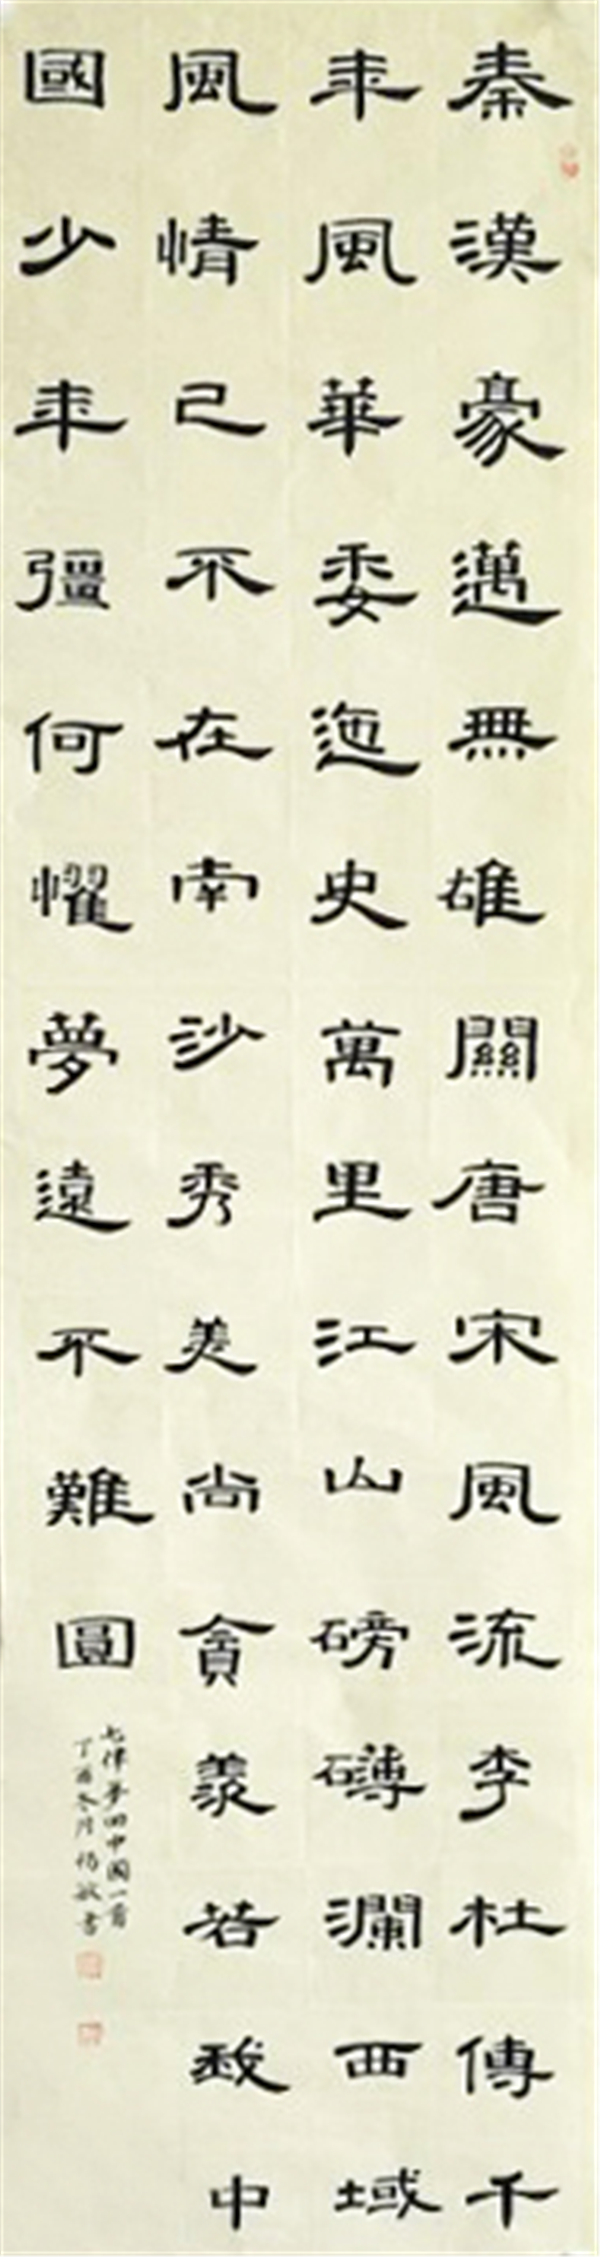 秦漢豪邁無雄關唐宋風流李杜傳千
年風華委迤史萬里江山磅礴瀾西域
風情已不在南沙秀美尚貪羨若致中
國少年彊何懼夢遠不難圓
七律夢回中國一首
丁酉冬月杨敏書